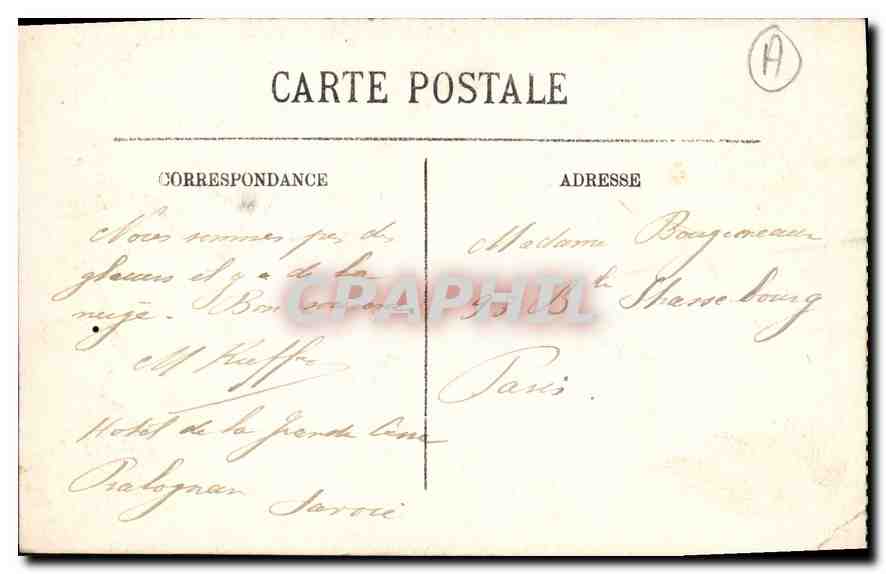 A
CARTE POSTALE
CORRESPONDANCE
ADRESSE
Nous sommes pres des
glaciers il y a de la
neige - Bon souvenir
M Kieffer
Hotel de la Grande Casse
Pralognan
Savoie
Madame Bougioneaux
95 Bd Strassbourg
Paris.
CPAPHIL